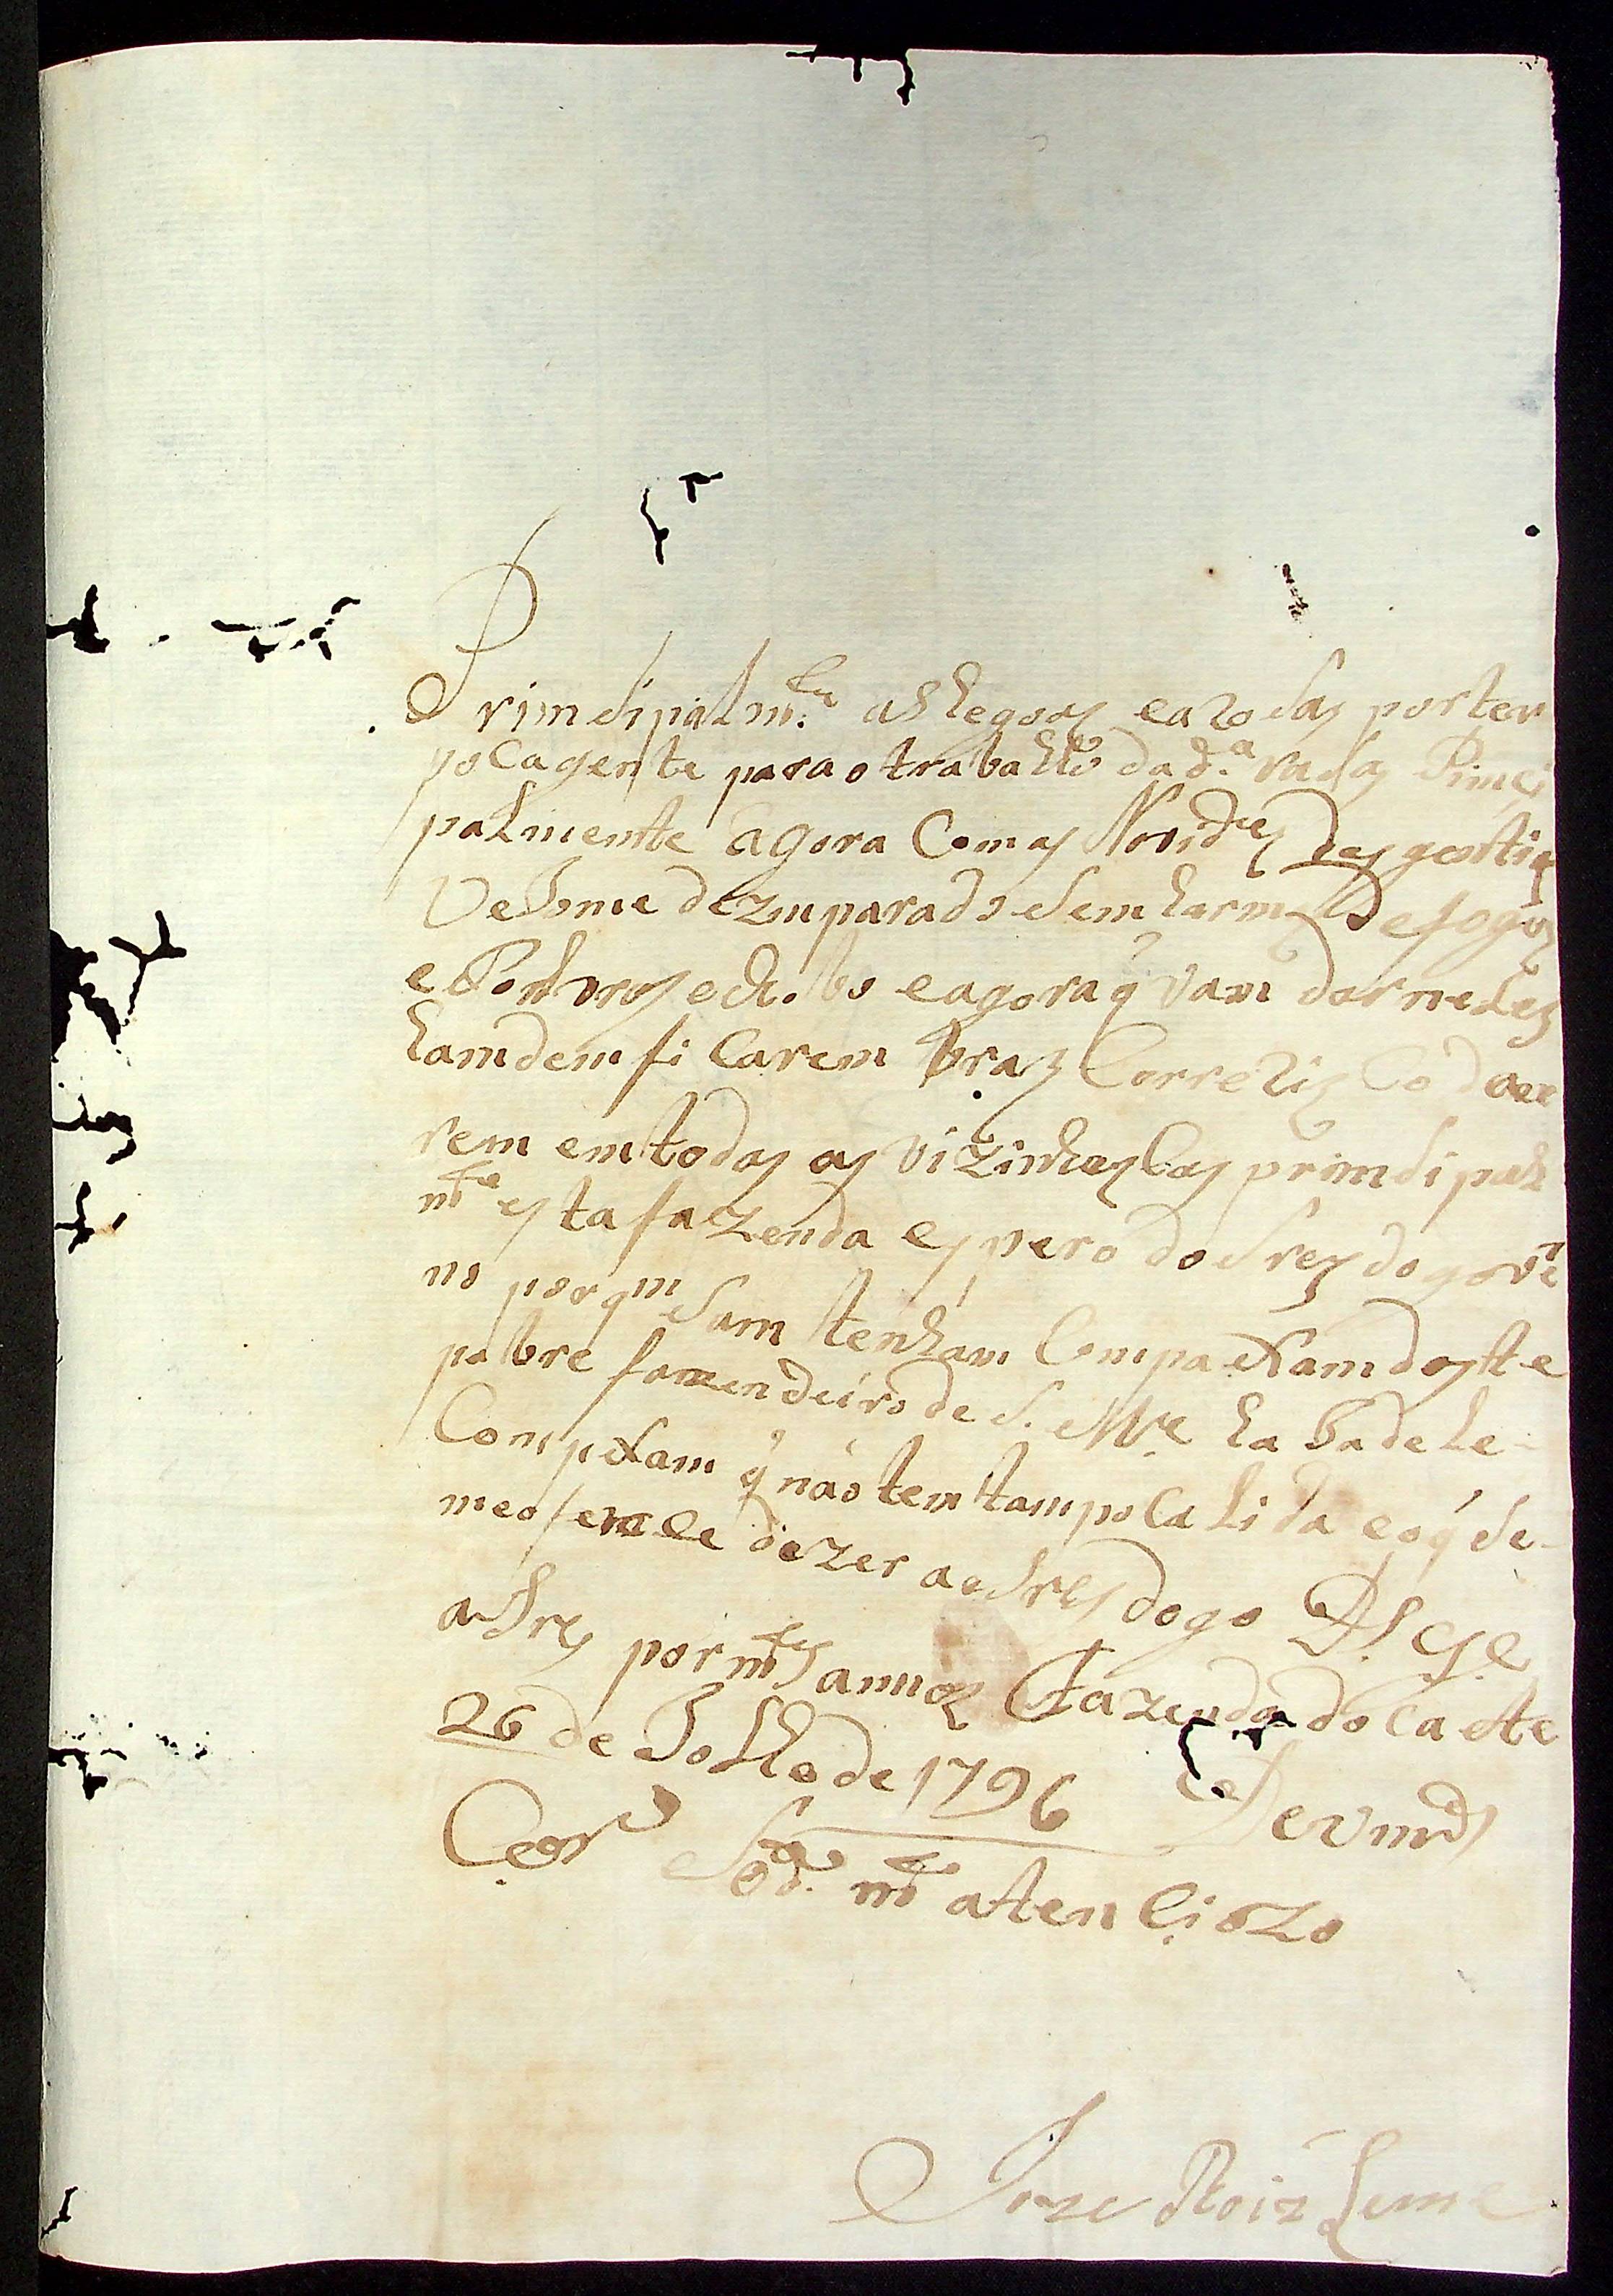 Primsipalm.te as legoas eazosas por ter
poca gente para o trabalho da d.a rasas Pimci
palmente agora Comas Novid.es des gentis
Vesome dezmparado Sem harmas de fogos
e Polvros e &.bo e agora q̃ vam dar neles
hamdem ficarem bras Correlis Co daer
rem em todas as vizinhescas primsipal
m.te esta fazenda espero do Sres do gove
no por q.m Sam tenham Compaexam doste
pobre fazendeiro de S. M.e ha Bade he
Compexam q̃ não tem tam poca lida eo q̃ se
me ofere ce dizer aos Sres do go D.s G.e
a Sres por m.tos annos Fazenda do Caete
26 de Jolho de 1796 De Vm.ces
Cor S.or m.to atenciozo
Joze Roiz Leme